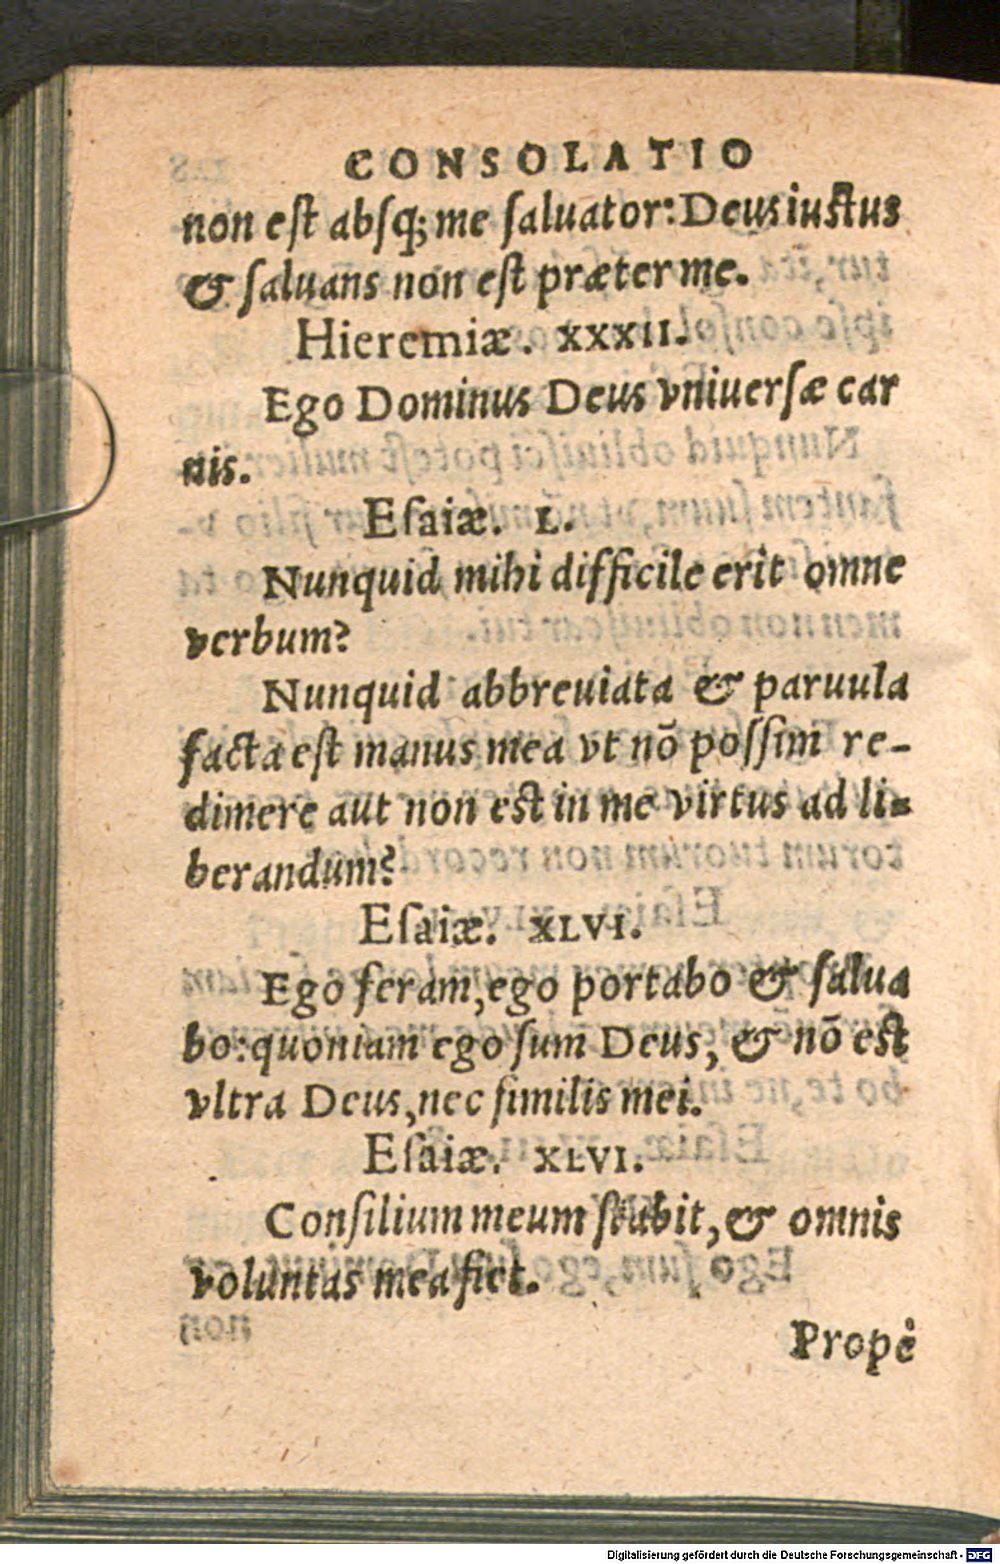 CONSOLATIO
non est absq; me saluator: Deus iustus
& saluans non est præter me.
Hieremiæ. XXXII.
Ego Dominus Deus vniuersæ car
nis.
Esaiæ. L.
Nunquid mihi difficile erit omne
verbum?
Nunquid abbreuiata & paruula
facta est manus mea vt nō possim re-
dimere aut non est in me virtus ad li-
berandum?
Esaiæ. XLVI.
Ego feram, ego portabo & salua
bo: quoniam ego sum Deus, & nō est
vltra Deus, nec similis mei.
Esaiæ. XLVI.
Consilium meum stabit, & omnis
voluntas mea fiet.
Propè
Digitalisierung gefördert durch die Deutsche Forschungsgemeinschaft - DFG